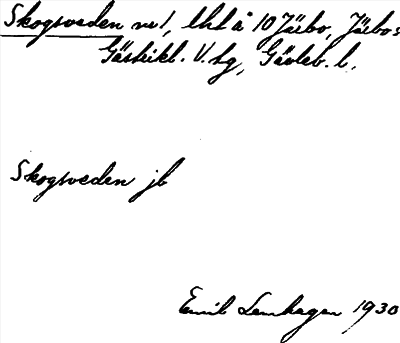 Skogsveden vre!, lht å 10 Järbo, Järbo s
Gästrikl. V. tg, Gävleb. l.
Skogsveden jb
Emil Lenhagen 1930